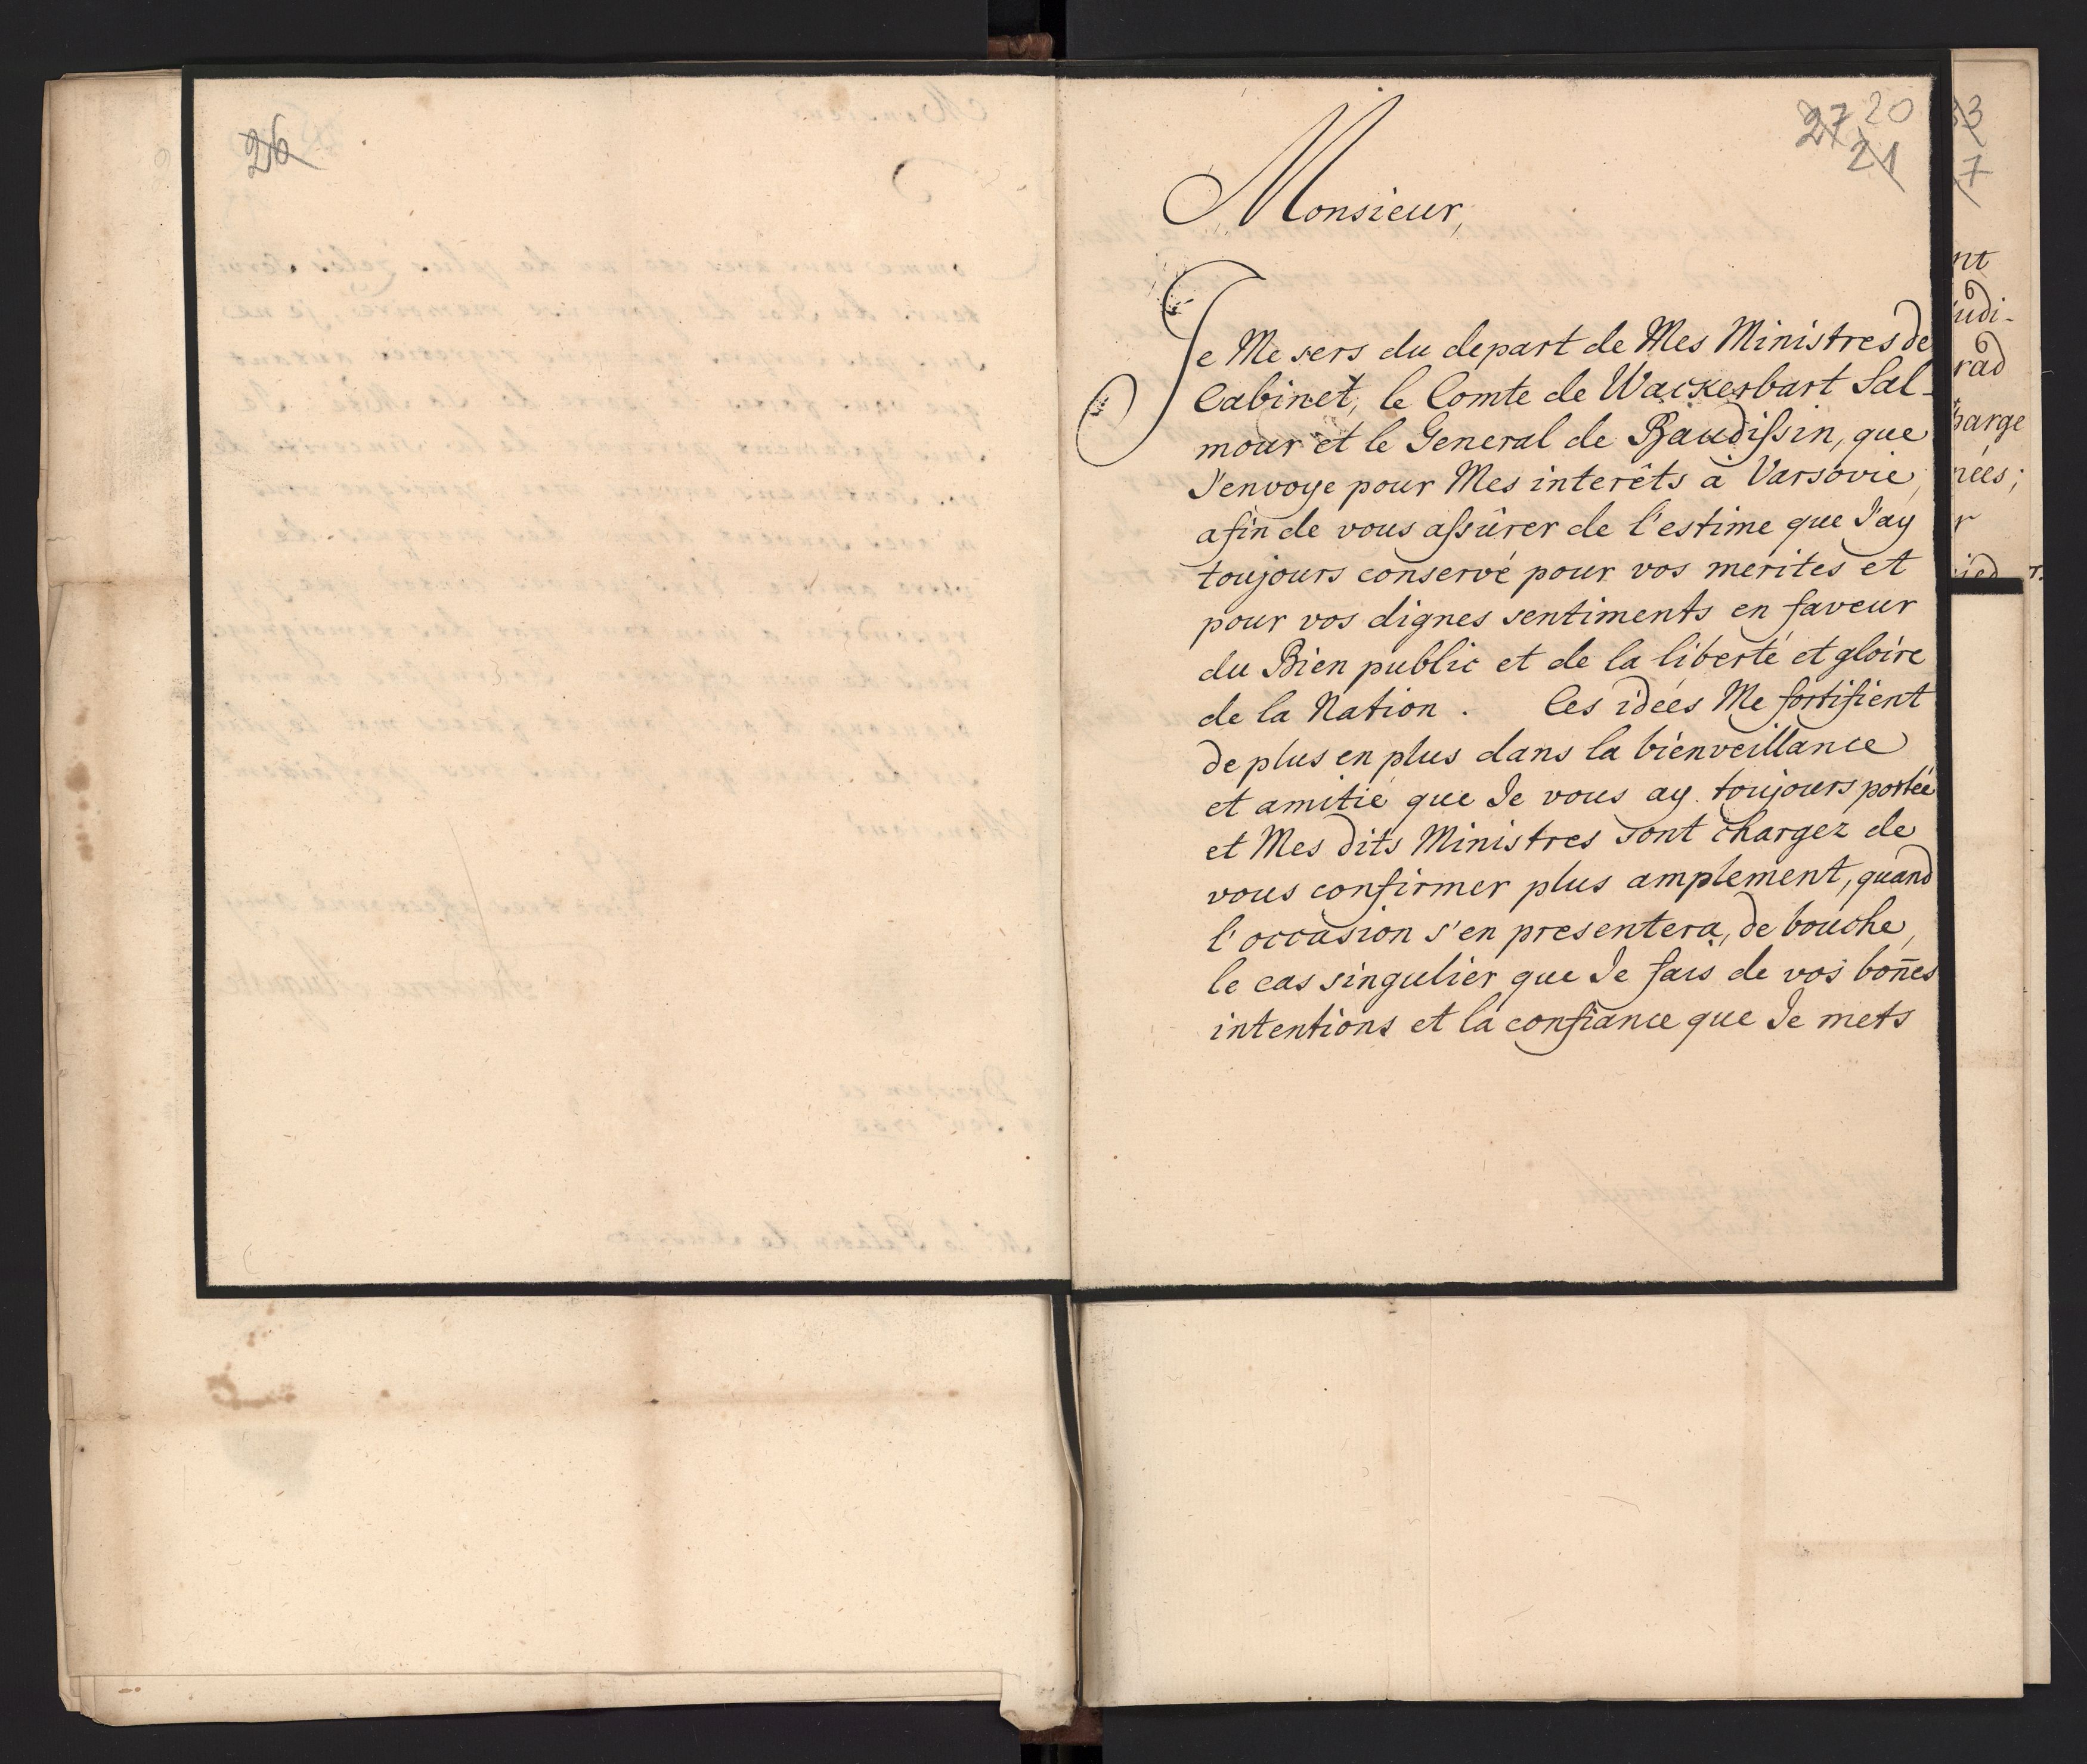 26
27 20
21
Monsieur,
Je Me sers du depart de Mes Ministres de
Cabinet, le Comte de Wackerbart Sal-
mour et le General de Baudissin, que
J'envoye pour Mes interêts à Varsovie,
afin de vous assûrer de l'estime que J'ay
toujours conservé pour vos merites et
pour vos dignes sentiments en faveur
du Bien public et de la liberté et gloire
de la Nation. Ces idées Me fortifient
de plus en plus dans la bienveillance
et amitié que Je vous ay toujours portée
et Mes dits Ministres sont chargez de
vous confirmer plus amplement, quand
l'occasion s'en presentera, de bouche,
le cas singulier que Je fais de vos boñes
intentions et la confiance que Je mets
33
7
nt
udi-
rad
harge
nées;
r